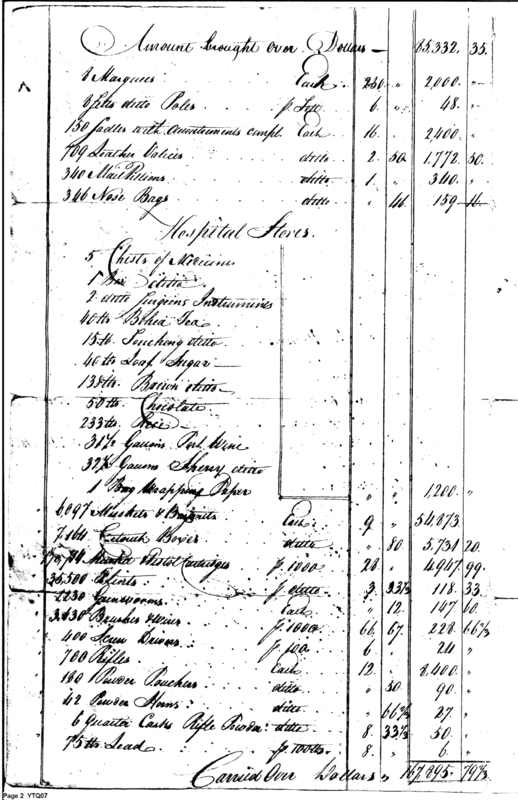 Amount brought over Dollars — 85,332, 35.
8 Marquees Each 250 „ 2,000. „
ditto Poles p. 6 „ 48. „
150 Sadles with Each 16 . 2,400. „
709 Leather Valices ditto 2. 50. 1,772. 50.
340 Mail Pillions ditto 1 „ 340. „
346 Nose Bags ditto „ 46 159
Hospital Stores.
5 Chests of Medicine
1 Box ditto
2 ditto Surgeons Instruments
40 lb. Bohea Tea
15 lb. Souchong ditto
40 lb Loaf Sugar —
138 lb. Brown ditto
50 lb. Chocolate
233 lb. Rice
31½ Gallons Port Wine
32½ Gallons Sherry ditto
1 Bag Wrapping Paper „ „ 1,200. „
6,097 Muskets & Bayonets Each 9 „ 54,873.
7,164 Cartouch Boxes ditto „ 80 5,731 20.
Musket & Pistol Cartridges p. 1000 28 „ 4947. 99.
35,500 Flints p. ditto 3. 33⅓ 118. 33
Each „ 12. 147. 60
Brushes & Wires p. 1000 66 67. 228. 66⅔
400 Screw Drivers p. 100 6. 24 „
700 Rifles Each 12. 8,400.
180 Powder Pouches ditto „ 50. 90. „
42 Powder Horns ditto „ 66⅔ 27. „
6 Quarter Casks Rifle Powder ditto 8. 33⅓ 50.
75 lb Lead p. 100 lb. 8. 6 „
Carried Over Dollars „ 167,895. 79⅔
Page 2 YTQ07